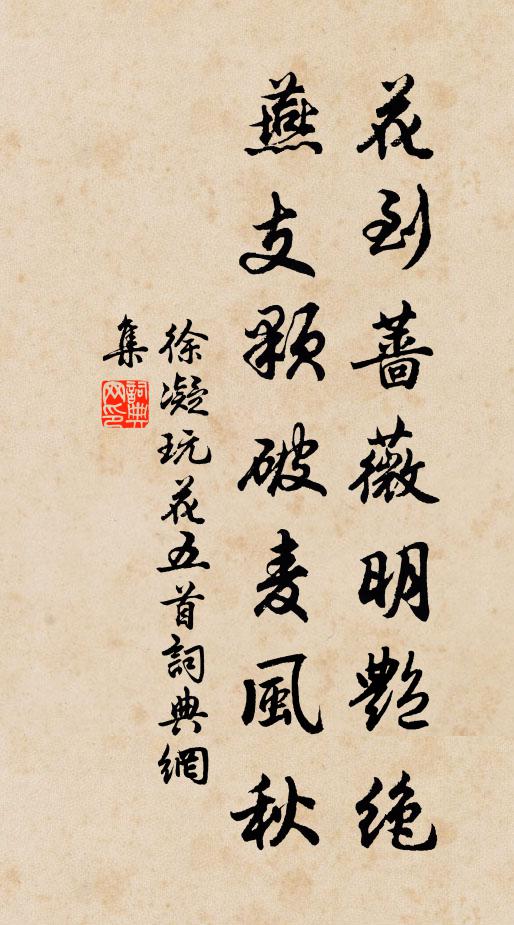 花到薔薇明艷絶
燕支顆破麦風秋
徐凝玩花五首詞典網
集
詞典
网印